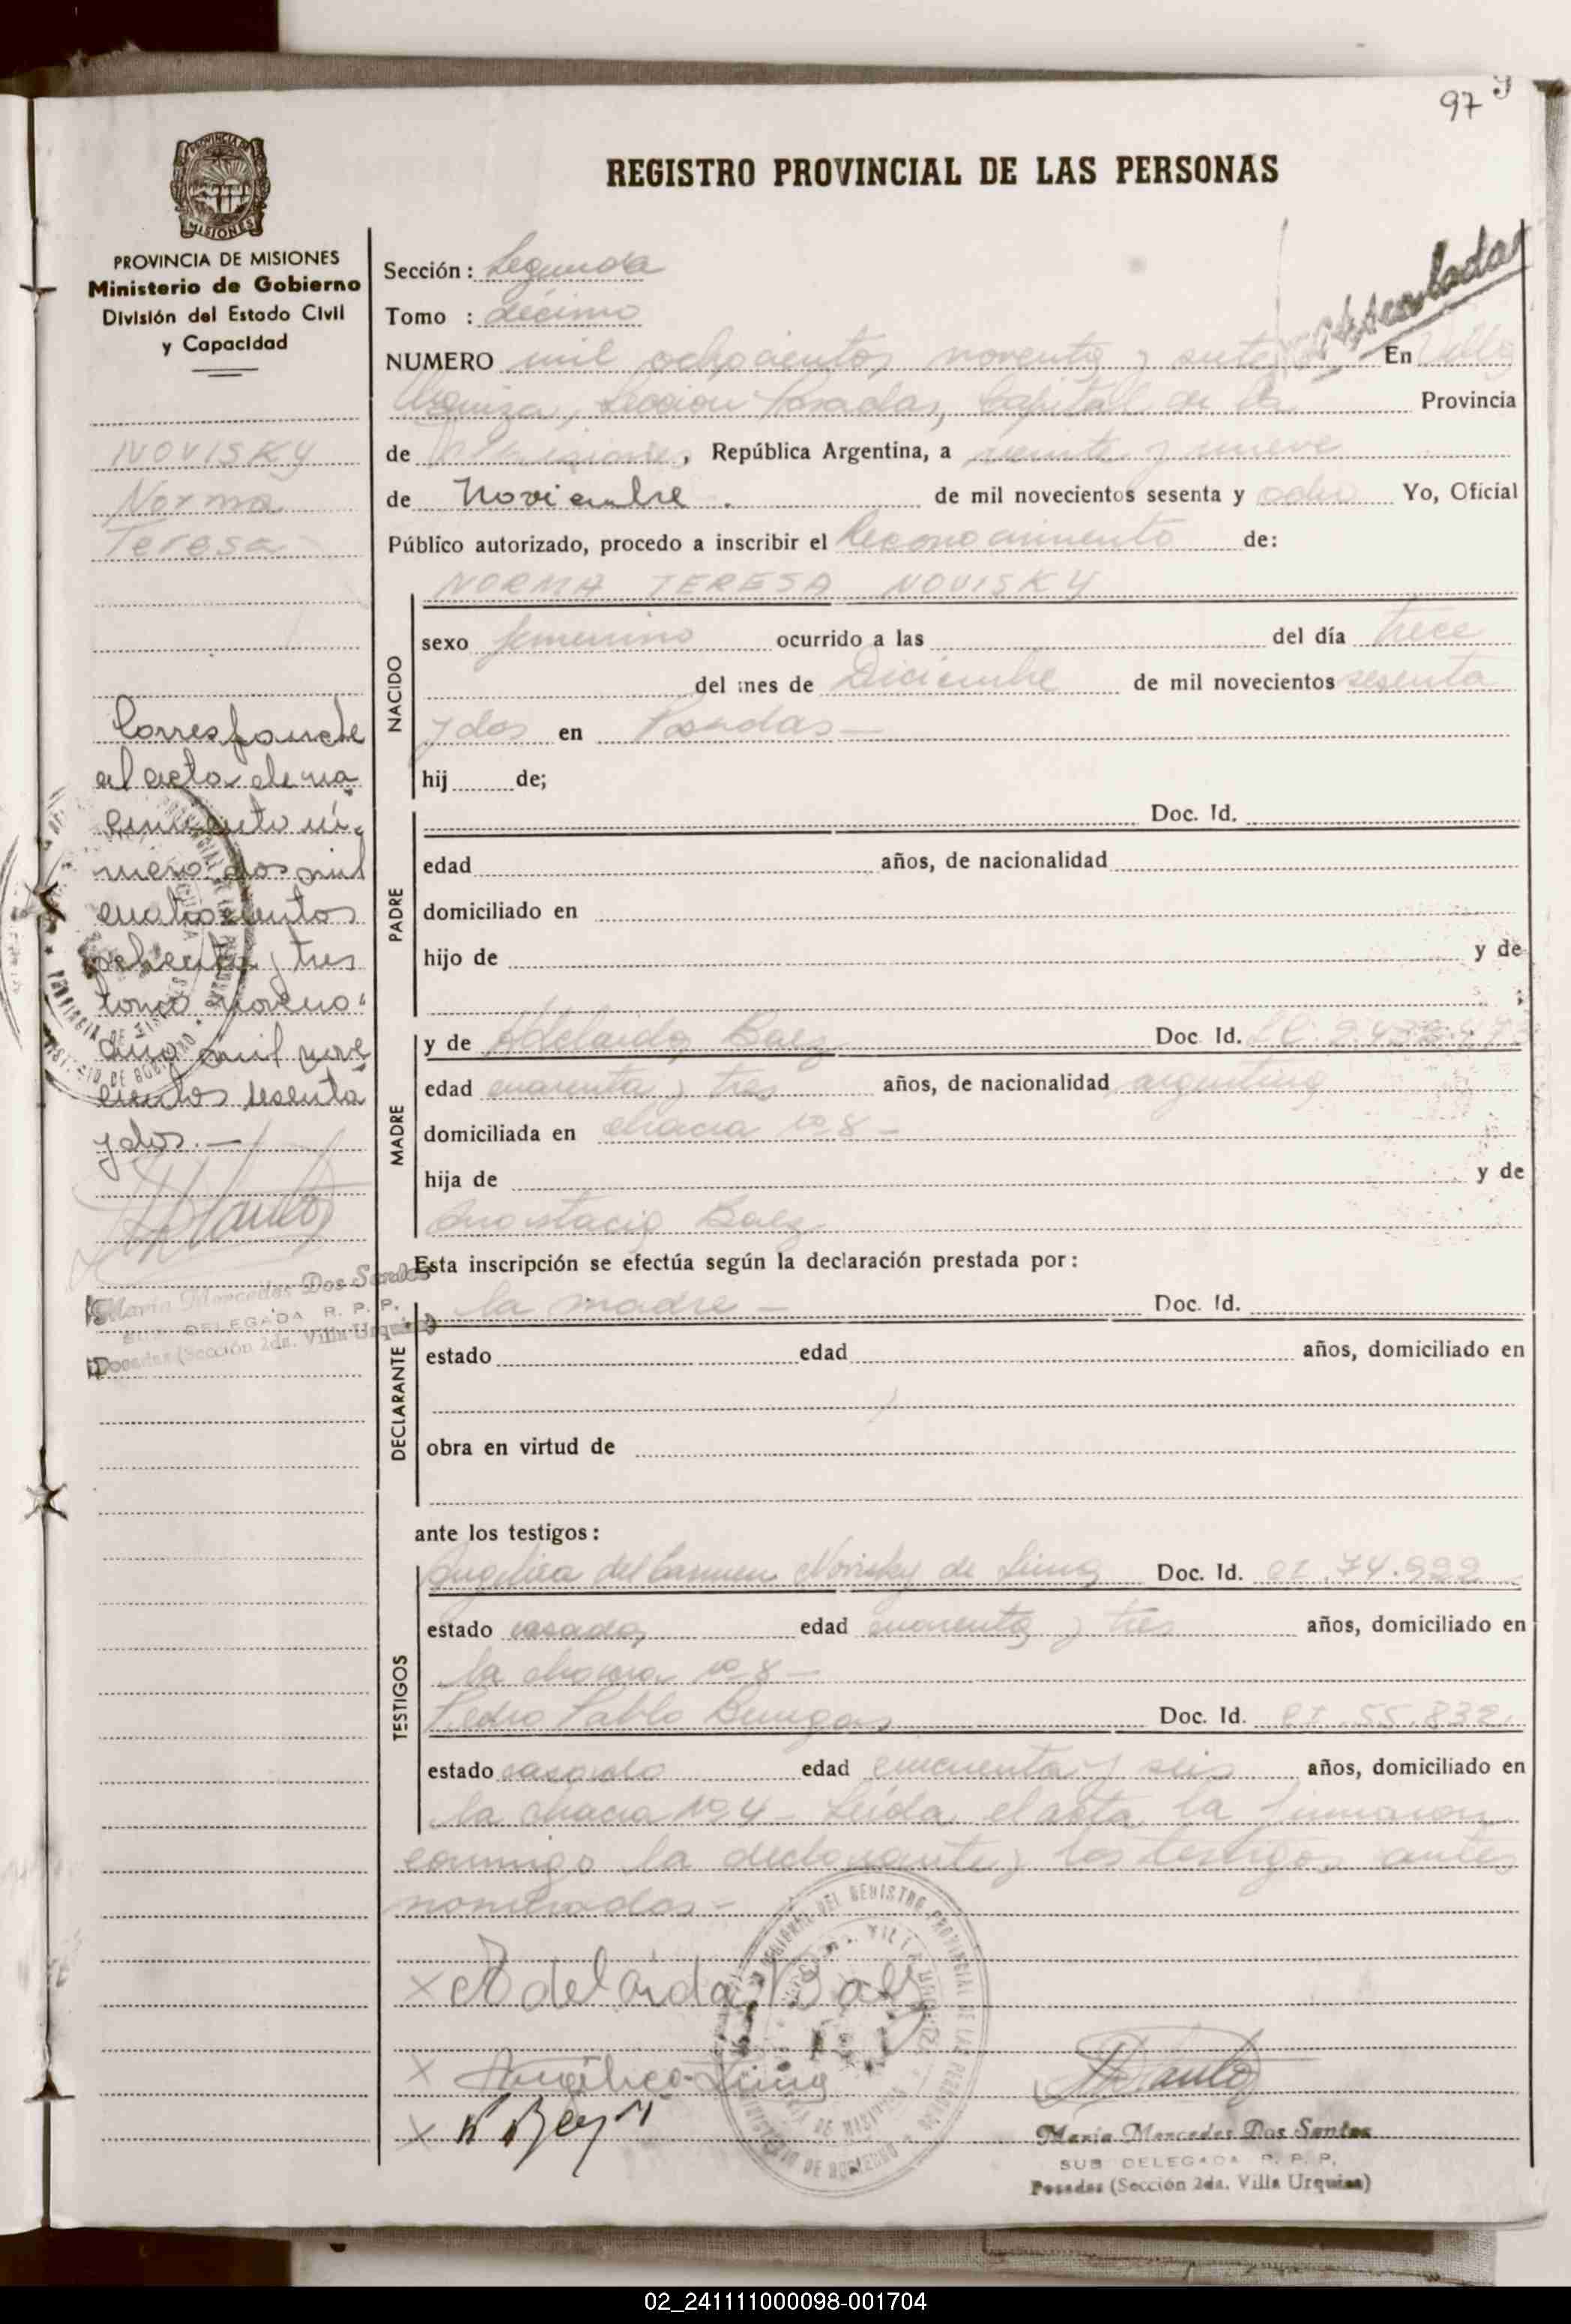 97
REGISTRO PROVINCIAL DE LAS PERSONAS
PROVINCIA DE MISIONES
Ministerio de Gobierno
División del Estado Civil
y Capacidad
NOVISKY
Norma
Teresa
Corresponde
al acta de na
cimiento nú-
mero dos mil
cuatrocientos
ochenta y tres
tomo noveno
año mil nove
cientos sesenta
y dos.—
Maria Mercedes Dos Santos
SUB DELEGADA R. P. P.
Posadas (Sección 2da. Villa Urquiza)
Sección: Segunda
Tomo : décimo
NUMERO mil ochocientos noventa y siete En Villa
Urquiza, Sección Posadas, Capital de la Provincia
de Misiones, República Argentina, a veinte y nueve
de Noviembre. de mil novecientos sesenta y ocho Yo, Oficial
Público autorizado, procedo a inscribir el Reconocimiento de:
NORMA TERESA NOVISKY
NACIDO
sexo femenino ocurrido a las del día trece
del mes de Diciembre de mil novecientos sesenta
y dos en Posadas—
hij de;
PADRE
Doc. Id.
edad años, de nacionalidad
domiciliado en
hijo de y de
;
MADRE
y de Adelaida Baez Doc. Id. LC
edad cuarenta y tres años, de nacionalidad argentina
domiciliada en chacra nº 8 –
hija de y de
Anastacia Baez
Esta inscripción se efectúa según la declaración prestada por:
DECLARANTE
la madre — Doc. Id.
estado edad años, domiciliado en
obra en virtud de
ante los testigos:
TESTIGOS
Angelica del Carmen Novisky de Doc. Id. CI. 74.922
estado casada edad cuarenta y tres años, domiciliado en
la chacra nº 8 –
Pedro Pablo Doc. Id. CI. 55.832
estado casado edad cincuenta y seis años, domiciliado en
la chacra nº 4 – Leída el acta la firmaron
conmigo la declarante y los testigos antes
nombrados –
X Adelaida Baez
X Angélica
X
Maria Mercedes Dos Santos
SUB DELEGADA R. P. P.
Posadas (Sección 2da. Villa Urquiza)
02_241111000098-001704